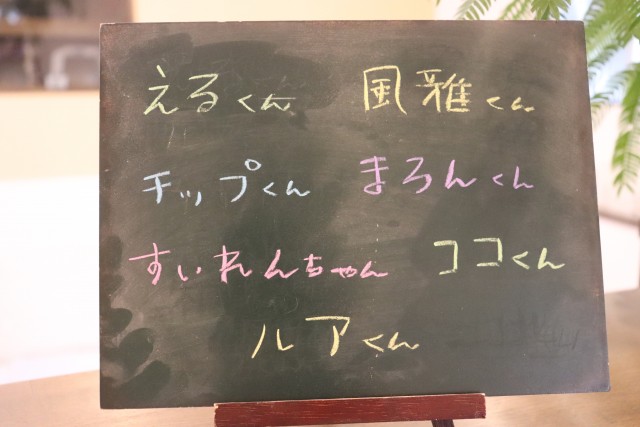 えるくん 風雅くん
チップくん まろんくん
すいれんちゃん ココくん
ルアくん